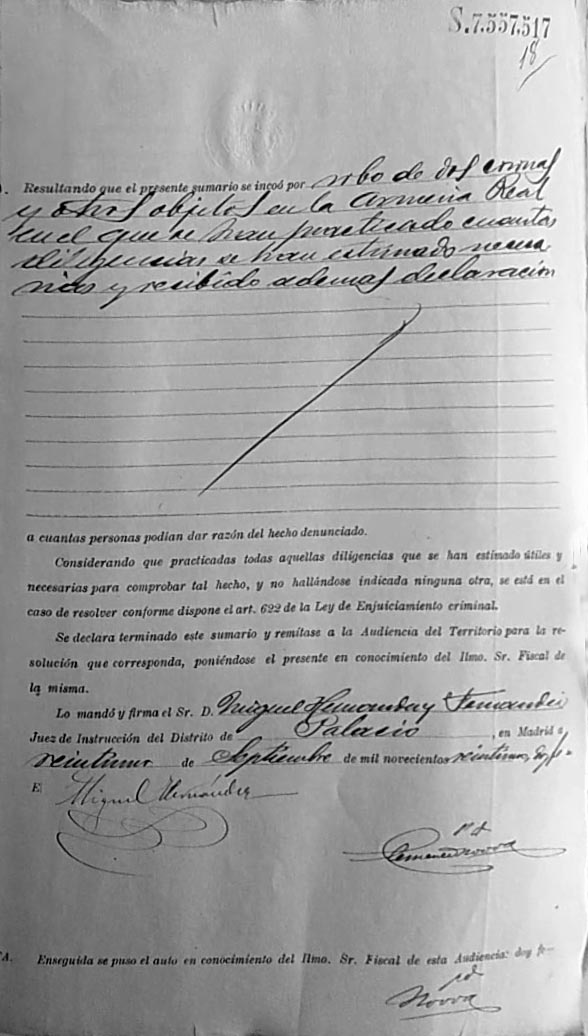 S.7.557,517
18
. Resultando que el presente sumario se incoó por robo de dos coronas
y otros objetos en la Armeria Real
en el que se han practicado cuantas
diligencias se han estimado necesa
rias y recibido ademas declaración
a cuantas personas podían dar razón del hecho denunciado.
Considerando que practicadas todas aquellas diligencias que se han estimado útiles y
necesarias para comprobar tal hecho, y no hallándose indicada ninguna otra, se está en el
caso de resolver conforme dispone el art. 622 de la Ley de Enjuiciamiento criminal.
Se declara terminado este sumario y remítase a la Audiencia del Territorio para la re-
solución que corresponda, poniéndose el presente en conocimiento del Ilmo. Sr. Fiscal de
la misma.
Lo mandó y firma el Sr. D. Miguel Hernandez Fernandez
Juez de Instrucción del Distrito de Palacio, en Madrid a
veintiuno de Septiembre de mil novecientos veintiuno, doy fe
El Miguel Hernández
A. Enseguida se puso el auto en conocimiento del Ilmo. Sr. Fiscal de esta Audiencia: doy fe—